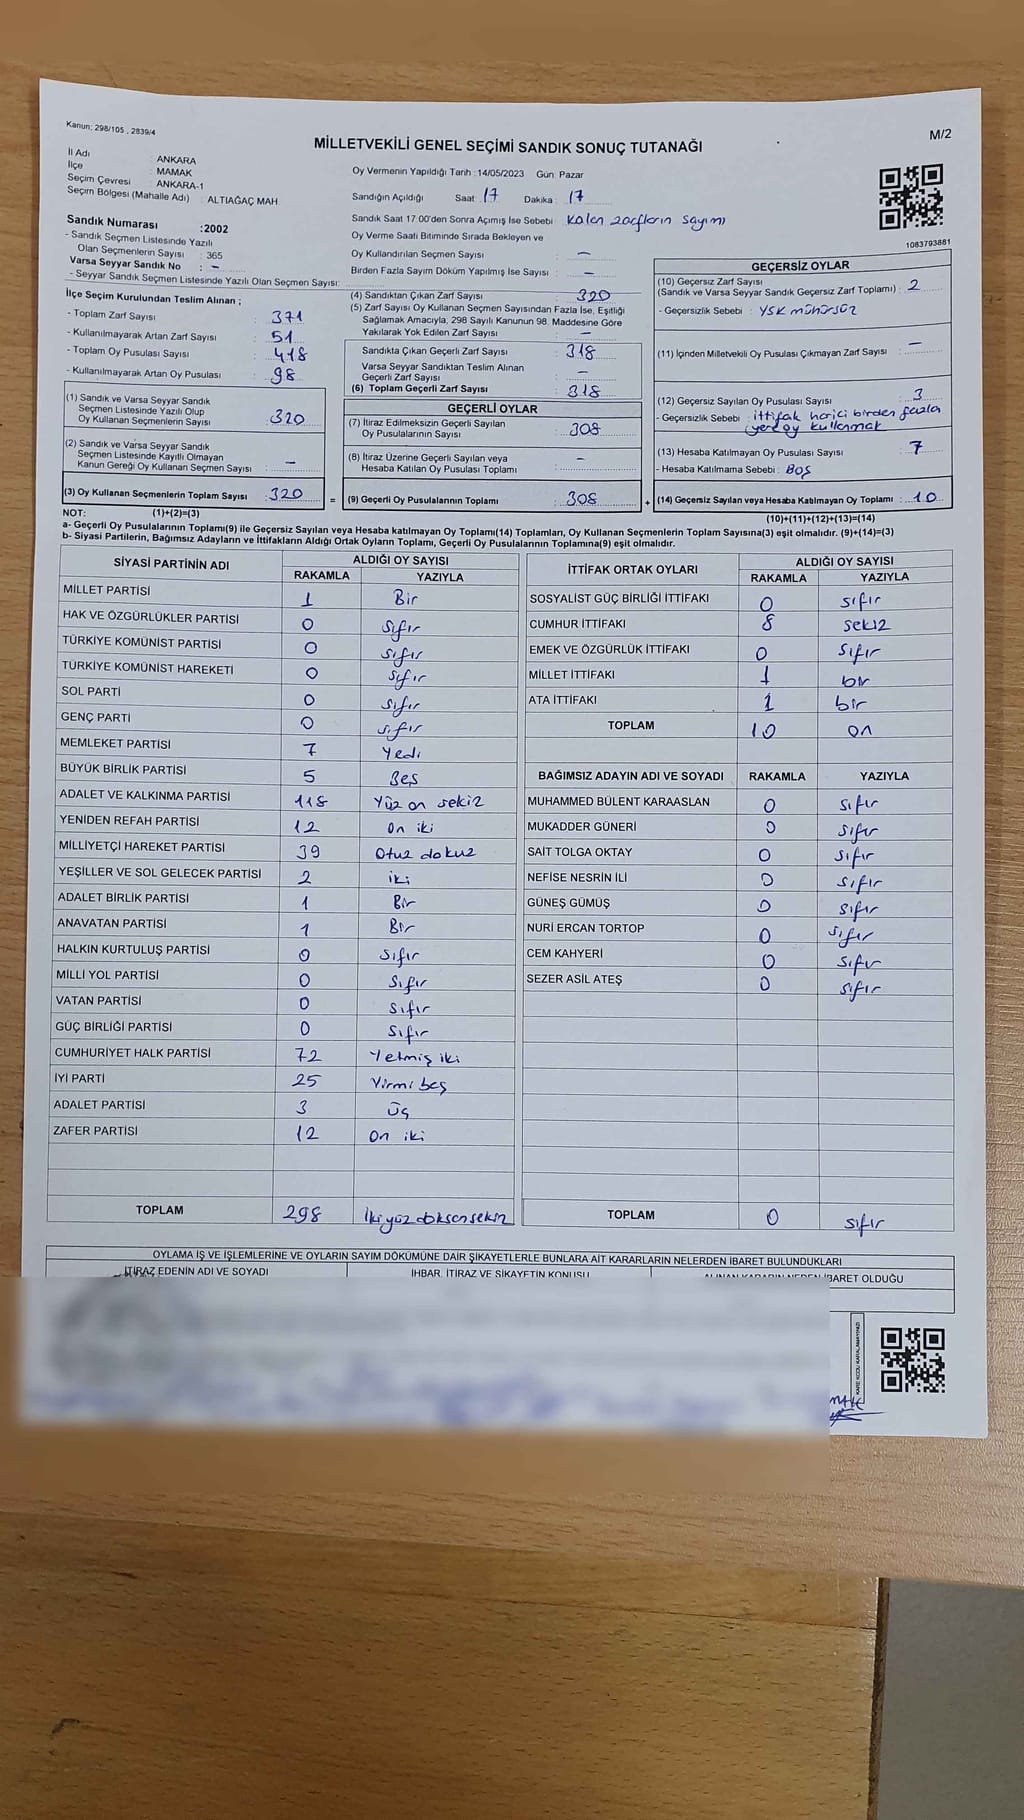 Kanun: 298/105 , 2839/4
M/2
MİLLETVEKİLİ GENEL SEÇİMİ SANDIK SONUÇ TUTANAĞI
İl Adı : ANKARA
İlçe : MAMAK
Seçim Çevresi : ANKARA-1
Seçim Bölgesi (Mahalle Adı) : ALTIAĞAÇ MAH.
Sandık Numarası :2002
- Sandık Seçmen Listesinde Yazılı
Olan Seçmenlerin Sayısı : 365
Varsa Seyyar Sandık No : –
- Seyyar Sandık Seçmen Listesinde Yazılı Olan Seçmen Sayısı:
Oy Vermenin Yapıldığı Tarih : 14/05/2023 Gün: Pazar
Sandığın Açıldığı Saat : 17 Dakika : 17
Sandık Saat 17:00'den Sonra Açımış İse Sebebi : Kalan zarfların sayımı
Oy Verme Saati Bitiminde Sırada Bekleyen ve
Oy Kullandırılan Seçmen Sayısı : –
Birden Fazla Sayım Döküm Yapılmış İse Sayısı : –
1083793881
İlçe Seçim Kurulundan Teslim Alınan ;
- Toplam Zarf Sayısı : 371
- Kullanılmayarak Artan Zarf Sayısı : 51
- Toplam Oy Pusulası Sayısı : 418
- Kullanılmayarak Artan Oy Pusulası : 98
(1) Sandık ve Varsa Seyyar Sandık
Seçmen Listesinde Yazılı Olup
Oy Kullanan Seçmenlerin Sayısı : 320
(2) Sandık ve Varsa Seyyar Sandık
Seçmen Listesinde Kayıtlı Olmayan
Kanun Gereği Oy Kullanan Seçmen Sayısı : –
(3) Oy Kullanan Seçmenlerin Toplam Sayısı : 320 =
(4) Sandıktan Çıkan Zarf Sayısı : 320
(5) Zarf Sayısı Oy Kullanan Seçmen Sayısından Fazla İse, Eşitliği
Sağlamak Amacıyla, 298 Sayılı Kanunun 98. Maddesine Göre
Yakılarak Yok Edilen Zarf Sayısı : –
Sandıkta Çıkan Geçerli Zarf Sayısı : 318
Varsa Seyyar Sandıktan Teslim Alınan
Geçerli Zarf Sayısı : –
(6) Toplam Geçerli Zarf Sayısı : 318
GEÇERLİ OYLAR
(7) İtiraz Edilmeksizin Geçerli Sayılan
Oy Pusulalarının Sayısı : 308
(8) İtiraz Üzerine Geçerli Sayılan veya
Hesaba Katılan Oy Pusulası Toplamı : –
(9) Geçerli Oy Pusulalarının Toplamı : 308 +
GEÇERSİZ OYLAR
(10) Geçersiz Zarf Sayısı
(Sandık ve Varsa Seyyar Sandık Geçersiz Zarf Toplamı) : 2
- Geçersizlik Sebebi : YSK mühürsüz
(11) İçinden Milletvekili Oy Pusulası Çıkmayan Zarf Sayısı : –
(12) Geçersiz Sayılan Oy Pusulası Sayısı : 3
- Geçersizlik Sebebi : ittifak harici birden fazla
yere oy kullanmak
(13) Hesaba Katılmayan Oy Pusulası Sayısı : 7
- Hesaba Katılmama Sebebi : Boş
(14) Geçersiz Sayılan veya Hesaba Katılmayan Oy Toplamı : 10
NOT: (1)+(2)=(3)
(10)+(11)+(12)+(13)=(14)
a- Geçerli Oy Pusulalarının Toplamı(9) ile Geçersiz Sayılan veya Hesaba katılmayan Oy Toplamı(14) Toplamları, Oy Kullanan Seçmenlerin Toplam Sayısına(3) eşit olmalıdır. (9)+(14)=(3)
b- Siyasi Partilerin, Bağımsız Adayların ve İttifakların Aldığı Ortak Oyların Toplamı, Geçerli Oy Pusulalarının Toplamına(9) eşit olmalıdır.
SİYASİ PARTİNİN ADI ALDIĞI OY SAYISI
RAKAMLA YAZIYLA
MİLLET PARTİSİ 1 Bir
HAK VE ÖZGÜRLÜKLER PARTİSİ 0 sıfır
TÜRKİYE KOMÜNİST PARTİSİ 0 sıfır
TÜRKİYE KOMÜNİST HAREKETİ 0 sıfır
SOL PARTİ 0 sıfır
GENÇ PARTİ 0 sıfır
MEMLEKET PARTİSİ 7 Yedi
BÜYÜK BİRLİK PARTİSİ 5 Beş
ADALET VE KALKINMA PARTİSİ 118 Yüz on sekiz
YENİDEN REFAH PARTİSİ 12 On iki
MİLLİYETÇİ HAREKET PARTİSİ 39 Otuz dokuz
YEŞİLLER VE SOL GELECEK PARTİSİ 2 iki
ADALET BİRLİK PARTİSİ 1 Bir
ANAVATAN PARTİSİ 1 Bir
HALKIN KURTULUŞ PARTİSİ 0 Sıfır
MİLLİ YOL PARTİSİ 0 Sıfır
VATAN PARTİSİ 0 Sıfır
GÜÇ BİRLİĞİ PARTİSİ 0 Sıfır
CUMHURİYET HALK PARTİSİ 72 Yetmiş iki
İYİ PARTİ 25 Yirmi beş
ADALET PARTİSİ 3 Üç
ZAFER PARTİSİ 12 On iki
TOPLAM 298 İkiyüz doksansekiz
İTTİFAK ORTAK OYLARI ALDIĞI OY SAYISI
RAKAMLA YAZIYLA
SOSYALİST GÜÇ BİRLİĞİ İTTİFAKI 0 sıfır
CUMHUR İTTİFAKI 8 sekiz
EMEK VE ÖZGÜRLÜK İTTİFAKI 0 sıfır
MİLLET İTTİFAKI 1 bir
ATA İTTİFAKI 1 bir
TOPLAM 10 on
BAĞIMSIZ ADAYIN ADI VE SOYADI RAKAMLA YAZIYLA
MUHAMMED BÜLENT KARAASLAN 0 sıfır
MUKADDER GÜNERİ 0 sıfır
SAİT TOLGA OKTAY 0 sıfır
NEFİSE NESRİN İLİ 0 sıfır
GÜNEŞ GÜMÜŞ 0 sıfır
NURİ ERCAN TORTOP 0 sıfır
CEM KAHYERİ 0 sıfır
SEZER ASİL ATEŞ 0 sıfır
TOPLAM 0 sıfır
OYLAMA İŞ VE İŞLEMLERİNE VE OYLARIN SAYIM DÖKÜMÜNE DAİR ŞİKAYETLERLE BUNLARA AİT KARARLARIN NELERDEN İBARET BULUNDUKLARI
İTİRAZ EDENİN ADI VE SOYADI İHBAR, İTİRAZ VE ŞİKAYETİN KONUSU ALINAN KARARIN NEDEN İBARET OLDUĞU
KARE KODU KARALAMAYINIZ!